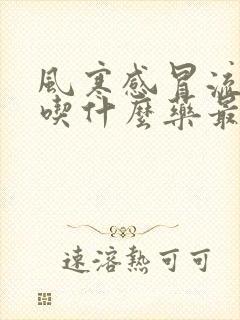 風寒感冒流
喫什麼藥最
速溶熱可可